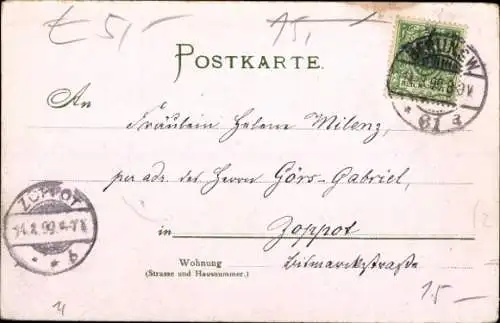 € 5,-
15,-
POSTKARTE.
BERLIN S.W.
61 a
An
Fräulein Helene Milenz,
per adr. des Herrn Görs-Gabriel,
ZOPPOT
14.8.99.4-7N
* * b
in Zoppot
Wohnung
(Strasse und Hausnummer.)
Bismarckstraße
15-